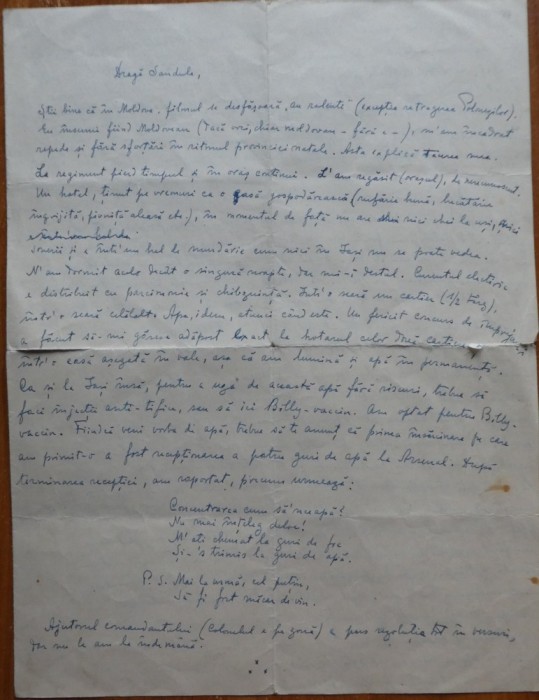 Dragă Sandule,
Știi bine că în Moldova filmul se desfășoară, au ralenti (excepție retragerea Polonejilor).
Eu însumi fiind Moldovan (dacă vrei, chiar moldovan - fără e -), m'am încadrat
repede și fără sforțări în ritmul provinciei natale. Asta explică tăcerea mea.
La regiment fiind timpul și în oraș continui. L'am regăsit (orașul), de nerecunoscut.
Un hotel, ținut pe vremuri ca o casă gospodărească (rufărie bună, bucătărie
îngrijită, pivniță aleasă etc), în momentul de față nu are nici chei la uși, nici
sonerii și e într'un hal de murdărie cum nici în Iași nu se poate vedea.
N'am dormit acolo decât o singură noapte, dar mi-i destul. Curentul electric
e distribuit cu parcimonie și chibzuință. Într'o seară un cartier (1/2 târg),
într'o seară celălalt. Apa, idem, atunci când este. Un fericit concurs de împrejurări
a făcut să-mi găsesc adăpost exact la hotarul celor două cartiere
într'o casă așezată în vale, așa că am lumină și apă în permanență.
Ca și la Iași însă, pentru a uza de această apă fără riscuri, trebue să
faci injecții anti-tifice, sau să iei Billy-vaccin. Am optat pentru Billy-
vaccin. Fiindcă veni vorba de apă, trebue să te anunț că prima însărcinare pe care
am primit-o a fost recepționarea a patru guri de apă la Arsenal. După
terminarea recepției, am raportat, precum urmează:
Concentrarea cum să 'nceapă!
Nu mai înțeleg deloc!
M'ați chemat la guri de foc
Și-s trimis la guri de apă.
P. S. Mai la urmă, cel puțin,
Să fi fost măcar de vin.
Ajutorul comandantului (Colonelul e pe zonă) a pus rezoluția tot în versuri,
dar nu le am la îndemână.